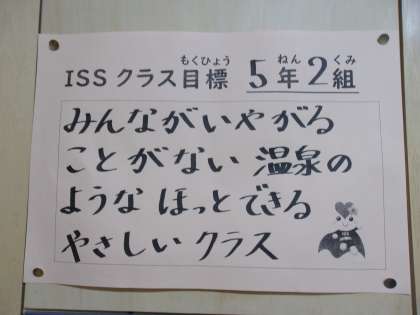 ISSクラス目標 5年2組
みんながいやがる
ことがない 温泉の
ような ほっとできる
やさしい クラス